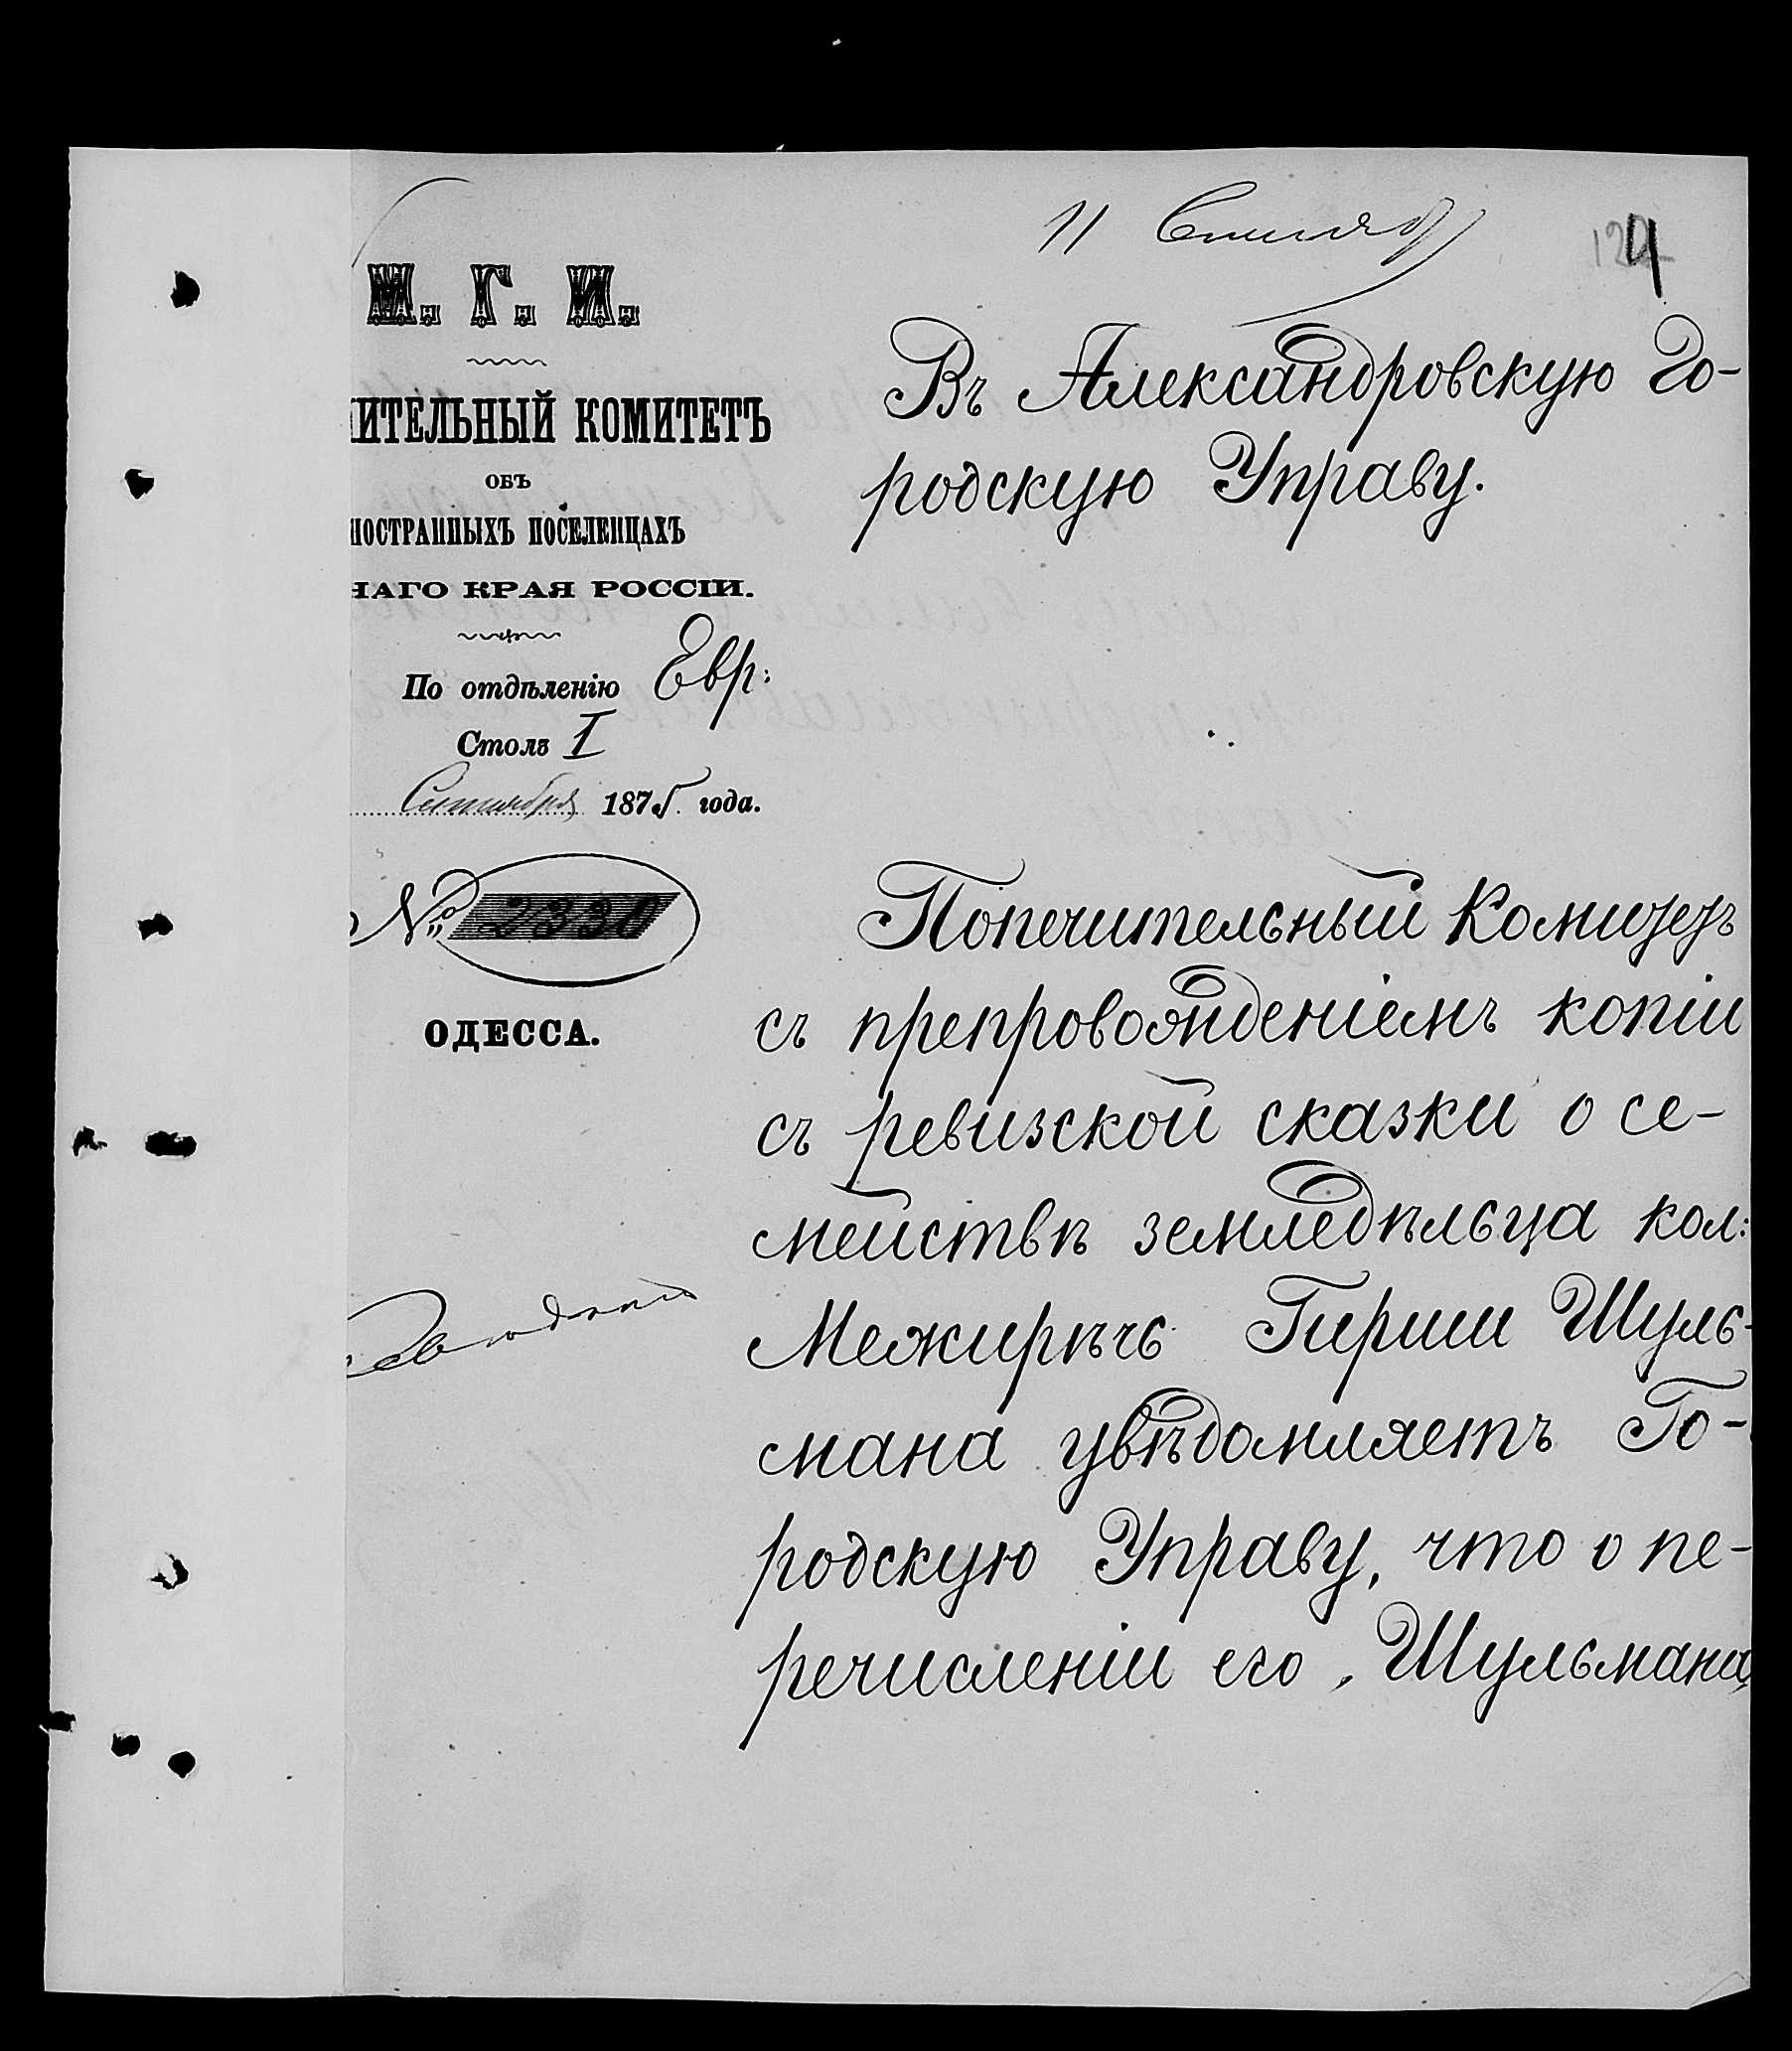 11 Сентяб
4
М. Г. И.
ИТЕЛЬНЫЙ КОМИТЕТЪ
ОБЪ
НОСТРАННЫХЪ ПОСЕЛЕНЦАХЪ
НАГО КРАЯ РОССІИ.
По отдѣленію Евр:
Столъ I
Сентября 1875 года.
№ 2330
ОДЕССА.
Въ Александровскую Го-
родскую Управу.
Попечительный Комитетъ
съ препровожденіемъ копіи
съ ревизской сказки о се-
мействѣ земледѣльца кол:
Межирѣчь Гирши Шуль-
мана увѣдомляетъ Го-
родскую Управу, что о пе-
речисленіи его, Шульмана,